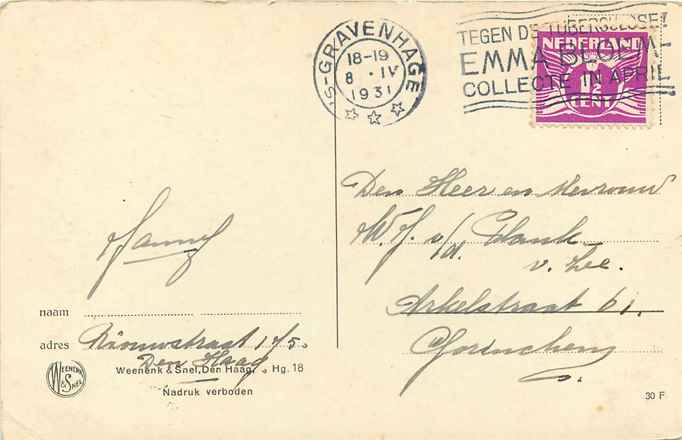 'S-GRAVENHAGE
18-19
8 . IV
1931
TEGEN DE TUBERCULOSE!
EMMA BLOEM-
COLLECTE IN APRIL
NEDERLAND
1½
CENT
Den Heer en Mevrouw
W. J. v/d. Plank
v. Lee.
Arkelstraat 61.
Gorinchem
naam
adres Riouwstraat 175
Den Haag
WEENENK
& SNEL
Weenenk & Snel, Den Haag, Hg. 18
Nadruk verboden
30 F